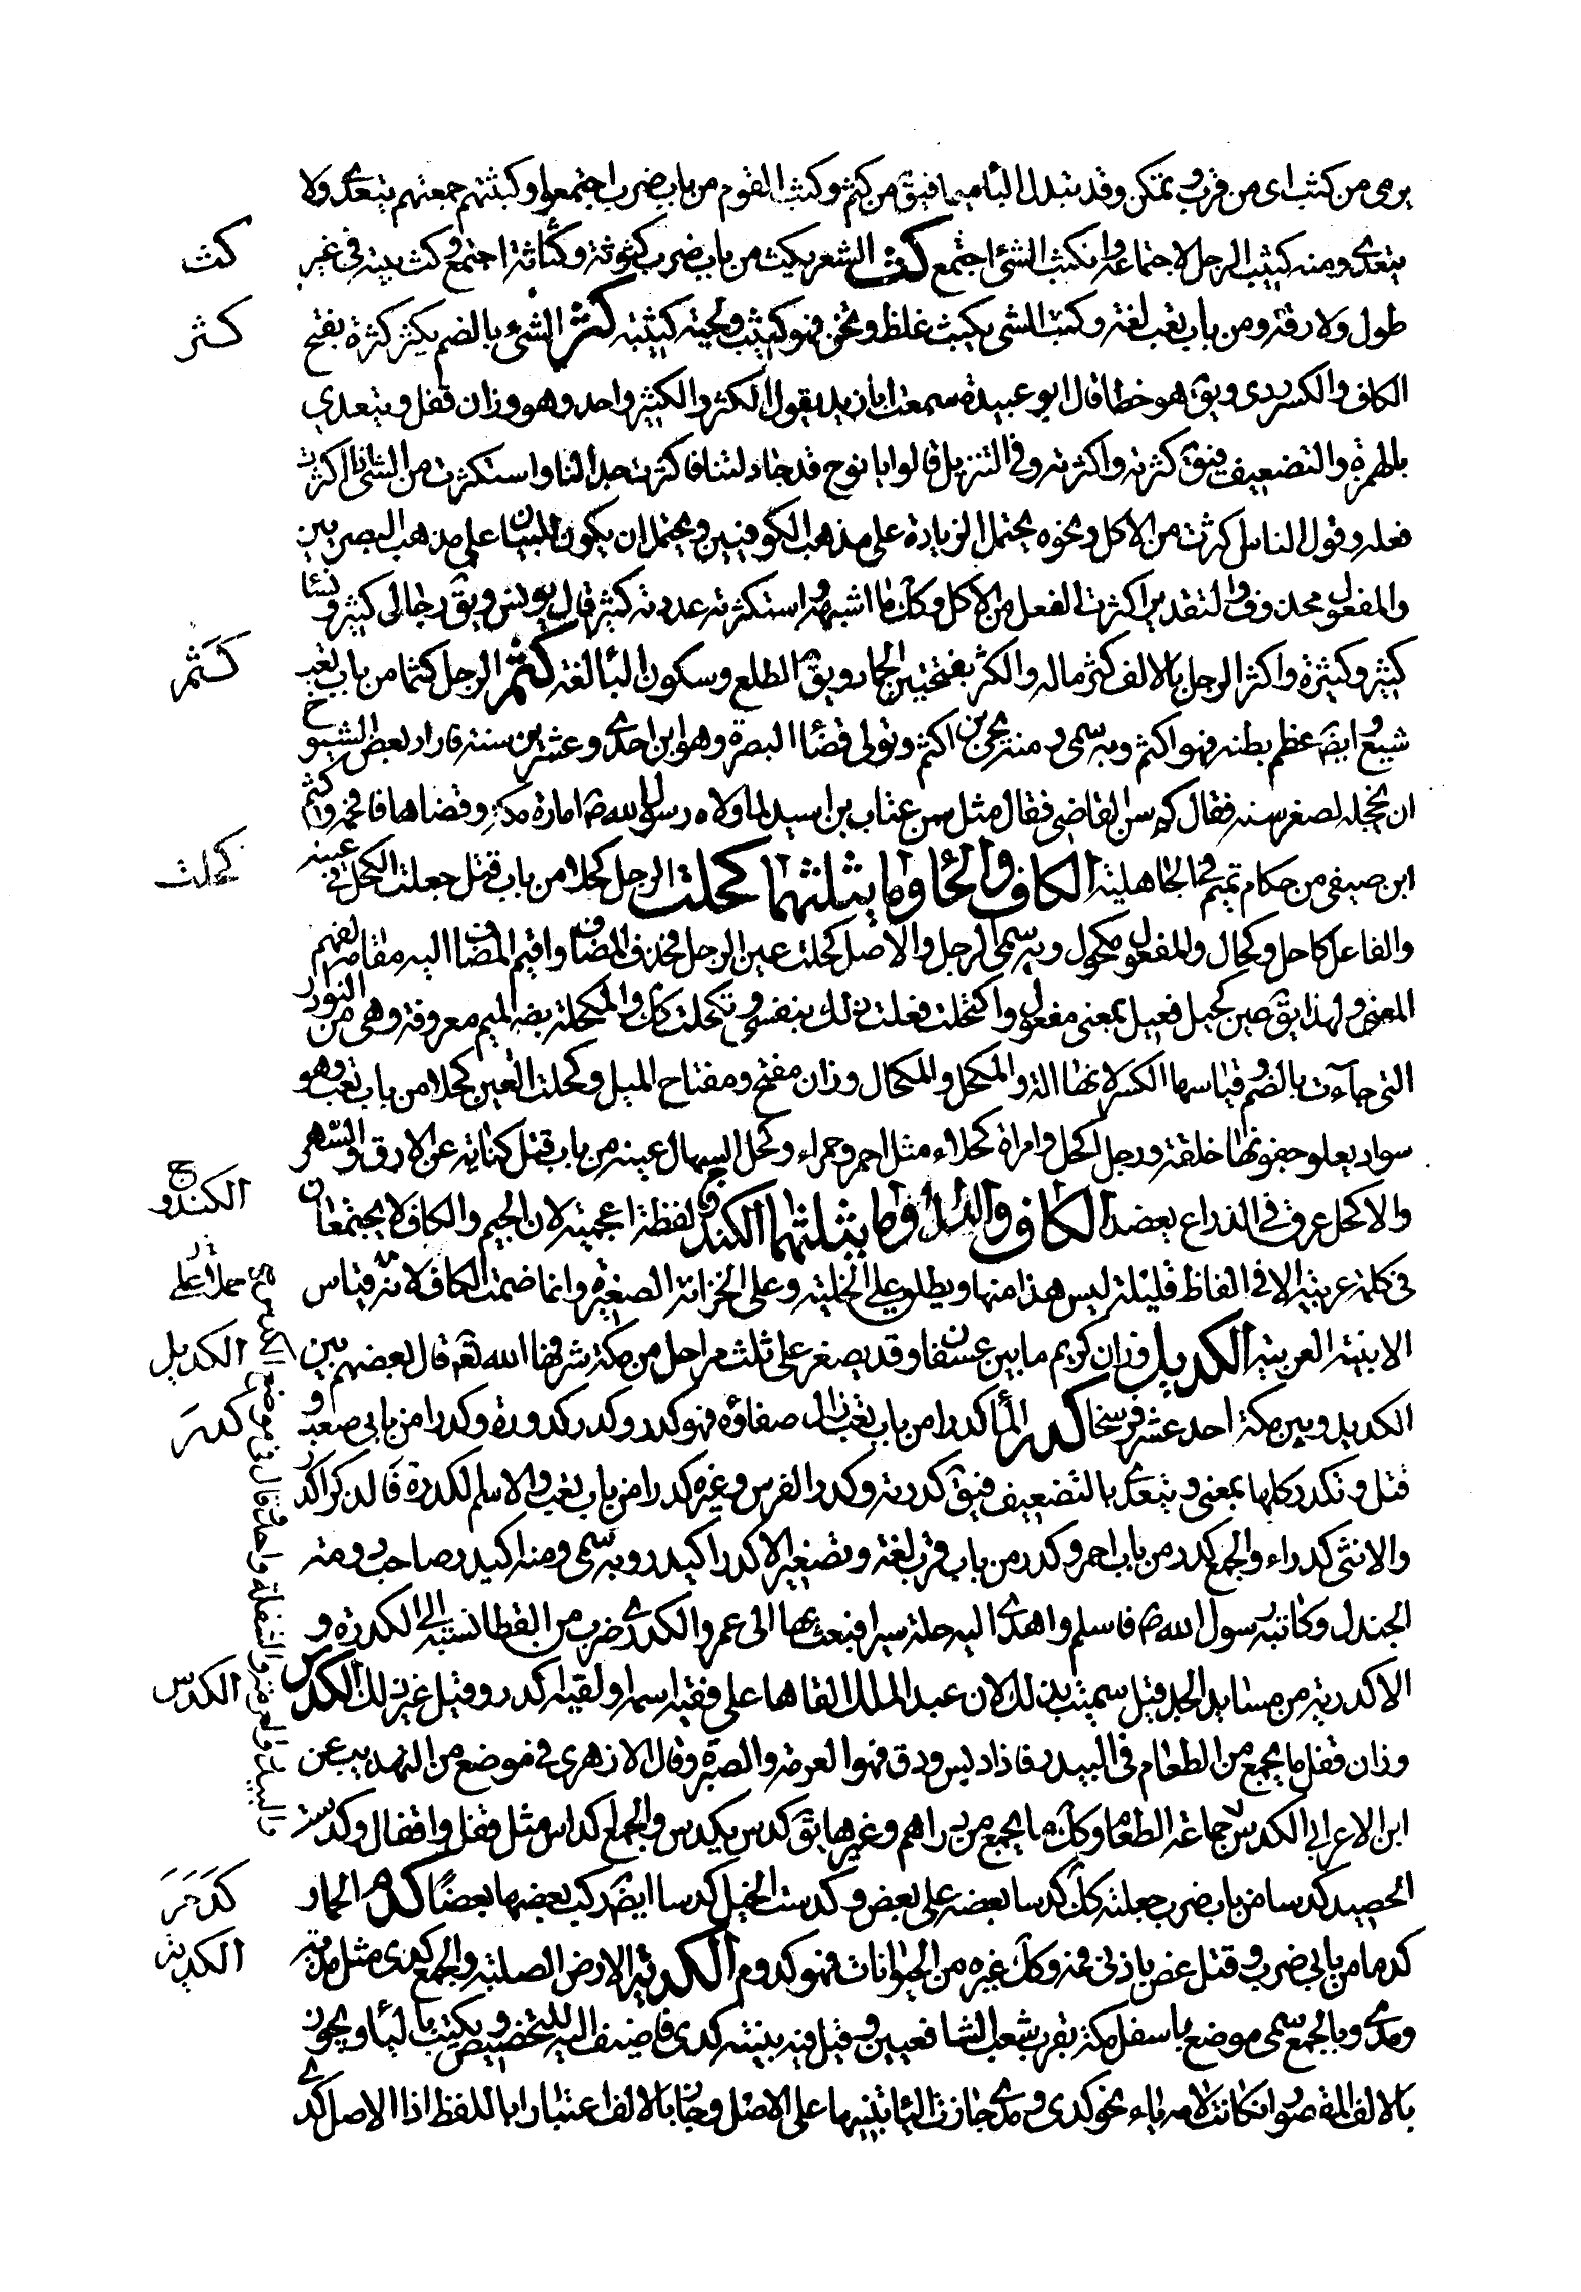 يرمى من كثب اى من قرب وتمكن وقد تبدل الباء ميما فيق من كثم وكثب القوم من باب ضرب اجتمعوا وكثبتهم جمعتهم يتعدى ولا
يتعدى ومنه كثيب الرمل لاجتماعه وانكثب الشئ اجتمع كث الشعر يكث من باب ضرب كثوثة وكثاثة اجتمع وكثر نبته فى غير
طول ولا رقة ومن باب تعب لغة وكثب الشى يكثب غلظ وثخن فهو كثيب ولحية كثيثة كثر الشئ بالضم يكثر كثرة بفتح
الكاف والكسر ردى ويق هو خطا قال ابو عبيدة سمعت ابا زيد يقول الكثر والكثير واحد وهو وزان قفل ويتعدى
بالهمزة والتضعيف فيق كثرته واكثرته وفى التنزيل قالوا يا نوح قد جادلتنا فاكثرت جدالنا واستكثرت من الشئ اذا اكثرت
فعله وقول الناس اكثرت من الاكل ونحوه يحتمل الزيادة على مذهب الكوفيين ويحتمل ان يكون للبيان على مذهب البصريين
والمفعول محذوف والتقدير اكثرت الفعل من الاكل وكك ما اشبهه واستكثرته عددته كثيرا قال يونس ويق رجال كثير ونساء
كثير وكثيرة واكثر الرجل بالالف كثر ماله والكثر بفتحتين الجمار ويق الطلع وسكون الثا لغة كثم الرجل كثما من باب تعب
شبع وايض عظم بطنه فهو اكثم وبه سمى ومنه يحيى بن اكثم وتولى قضاء البصرة وهو ابن احدى وعشرين سنة فاراد بعض الشيوخ
ان يخجله لصغر سنه فقال كم سن القاضى فقال مثل سن عتاب بن اسيد لما ولاه رسول الله ص امارة مكة وقضاها فافحمه واكثم
ابن صيفى من حكام تميم فى الجاهلية الكاف والحا وما يثلثهما كحلت الرجل كحلا من باب قتل جعلت الكحل فى عينه
والفاعل كاحل وكحال والمفعول مكحول وبه سمى الرجل والاصل كحلت عين الرجل فحذف المضاف واقيم المضاف اليه مقامه لفهم
المعنى ولهذا يق عين كحيل فعيل بمعنى مفعول واكتحلت فعلت ذلك بنفسى وتكحلت كك والمكحلة بضم الميم معروفة وهى من النوادر
التى جاءت بالضم وقياسها الكسر لانها الة والمكحل والمكحال وزان مفتح ومفتاح الميل وكحلت العين كحلا من باب تعب وهو
سواد يعلو جفونها خلقة ورجل اكحل وامراة كحلاء مثل احمر وحمراء وكحل السهال عينه من باب قتل كناية عن الارق والسهر
والاكحل عرق فى الذراع يفصد الكاف والدال وما يثلثهما الكندوج لفظة اعجمية لان الجيم والكاف لا يجتمعان
فى كلمة عربية الا فى الفاظ قليلة ليس هذا منها ويطلق على الخلية وعلى الخزانة الصغيرة وانما ضمت الكاف لانه قياس
الابنية العربية الكديد وزان كريم ما بين عسفان وقديد مصغر على ثلث مراحل من مكة شرفها الله تعه قال بعضهم بين
الكديد وبين مكة احد عشر فرسخا كدر الماء كدرا من باب تعب زال صفاؤه فهو كدر وكدر كدورة وكدرا من بابى صعب و
قتل وتكدر كلها بمعنى ويتعدى بالتضعيف فيق كدرته وكدر الفرس وغيره كدرا من باب تعب والاسم الكدرة فالذكر اكدر
والانثى كدراء والجمع كدر من باب احمر وكدر من باب قرب لغة وتصغير الاكدر اكيدر وبه سمى ومنه اكيدر صاحب دومة
الجندل وكاتبه رسول الله ص فاسلم واهدى اليه حلة سيرا فبعث بها الى عمر والكدرى ضرب من القطا نسبة الى الكدرة و
الاكدرية من مسايل الجد قيل سميت بذلك لان عبد الملك القاها على فقيه اسمه او لقبه اكدر وقيل غير ذلك الكدس
وزان قفل ما يجمع من الطعام فى البيدر فاذا ديس ودق فهو العرمة والصبرة وقال الازهرى فى موضع من التهذيب عن
ابن الاعرابى الكدس جماعة الطعام وكك ما يجمع من دراهم وغيرها يق كدس يكدس والجمع اكداس مثل قفل واقفال وكدست
الحصيد كدسا من باب ضرب جعلته كدسا بعضه على بعض وكدست الخيل كدسا ايض ركب بعضها بعضا كدم الحمار
كدما من بابى ضرب وقتل عض بادنى فمه وكك غيره من الحيوانات فهو كدوم الكدية الارض الصلبة والجمع كدى مثل مدية
ومدى وبالجمع سمى موضع باسفل مكة بقرب شعب الشافعيين وقيل فيه ثنية كدى فاضيف اليه للتخصيص ويكتب بالياء ويجوز
بالالف المقصور ان كانت لامه ياء نحو كدى ومدى جازت الياء تنبيها على الاصل وجاز بالالف اعتبارا باللفظ اذ الاصل كدى
كث
كثر
كثم
كحلت
الكندوج
الكديد
كدر
الكدس
كدم
الكدية